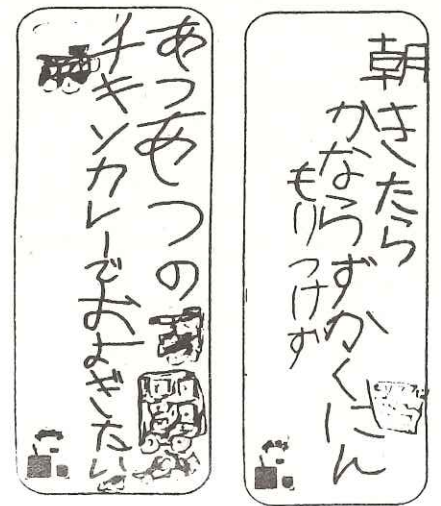 朝きたら
かならずかくにん
もりつけず
あつあつの
チキンカレーでおよぎたい